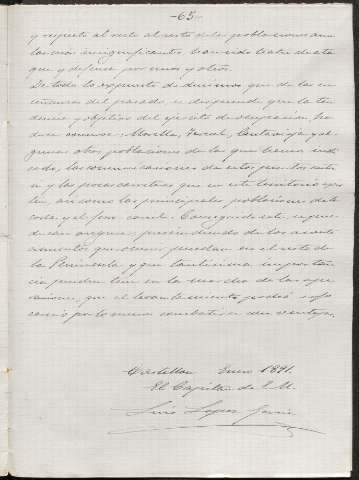 -65-
y respecto al resto al resto de las poblaciones aun
las mas insignificantes, han sido teatro de ata
que y defensa por unos y otros.
De todo lo expuesto deducimos que de las en
señanzas del pasado, se desprende que la ten
dencia y objetivo del ejercito de ocupacion, ha
de ser conservar: Morella, Lucena, Cantavieja y al-
gunas otras poblaciones de la que hemos indi
cado, las comunicaciones de estos puntos entre
si y las pocas carreteras que en este territorio exis
ten, asi como las principales poblaciones de la
costa y el ferro-carril. Conseguido esto, se pue
de casi asegurar, prescindiendo de los aconte
cimientos que ocurrir puedan en el resto de
la Peninsula y que tantisima importan
cia pueden tener en la marcha de las ope
raciones, que el levantamiento podrá sofo
carse por lo menos combatirse con ventaja.
Castellon Enero 1891.
El Capitán de E.M.
Luis Lopez Garcia